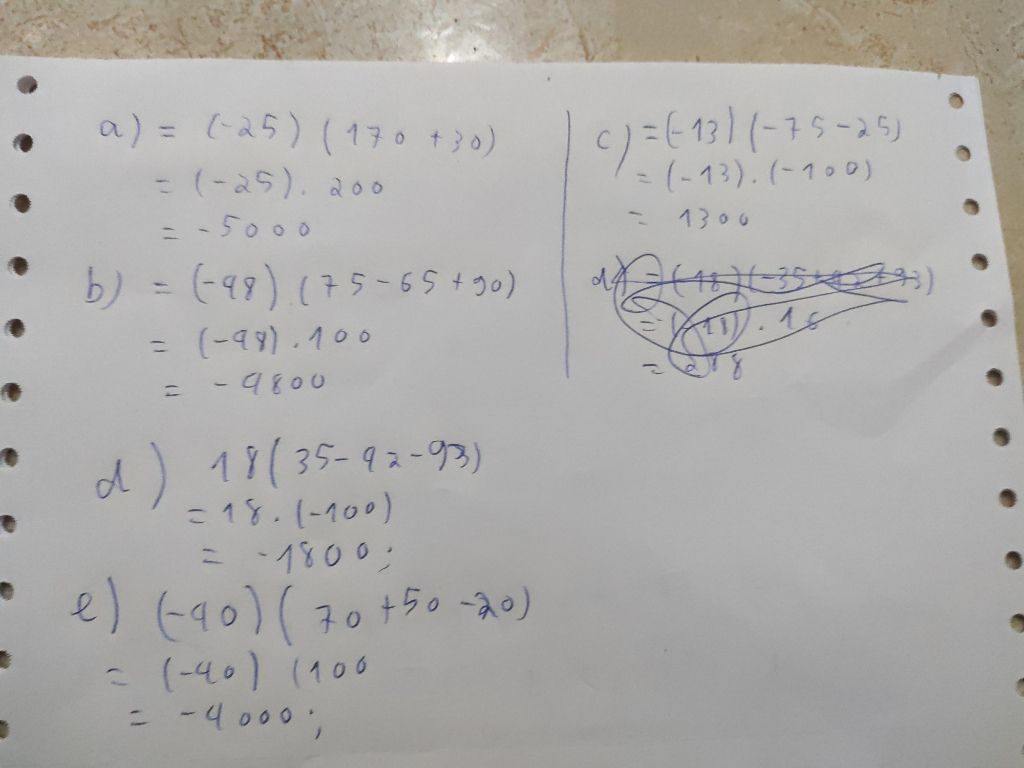 a) = (-25) (170 +30)
= (-25). 200
= -5000
b) = (-98).(75-65+90)
= (-98).100
= -9800
c) =(-13)(-75-25)
= (-13).(-100)
= 1300
d) 18(35-92-93)
=18.(-100)
= -1800;
e) (-90)(70+50-20)
= (-40) (100
= -4000;